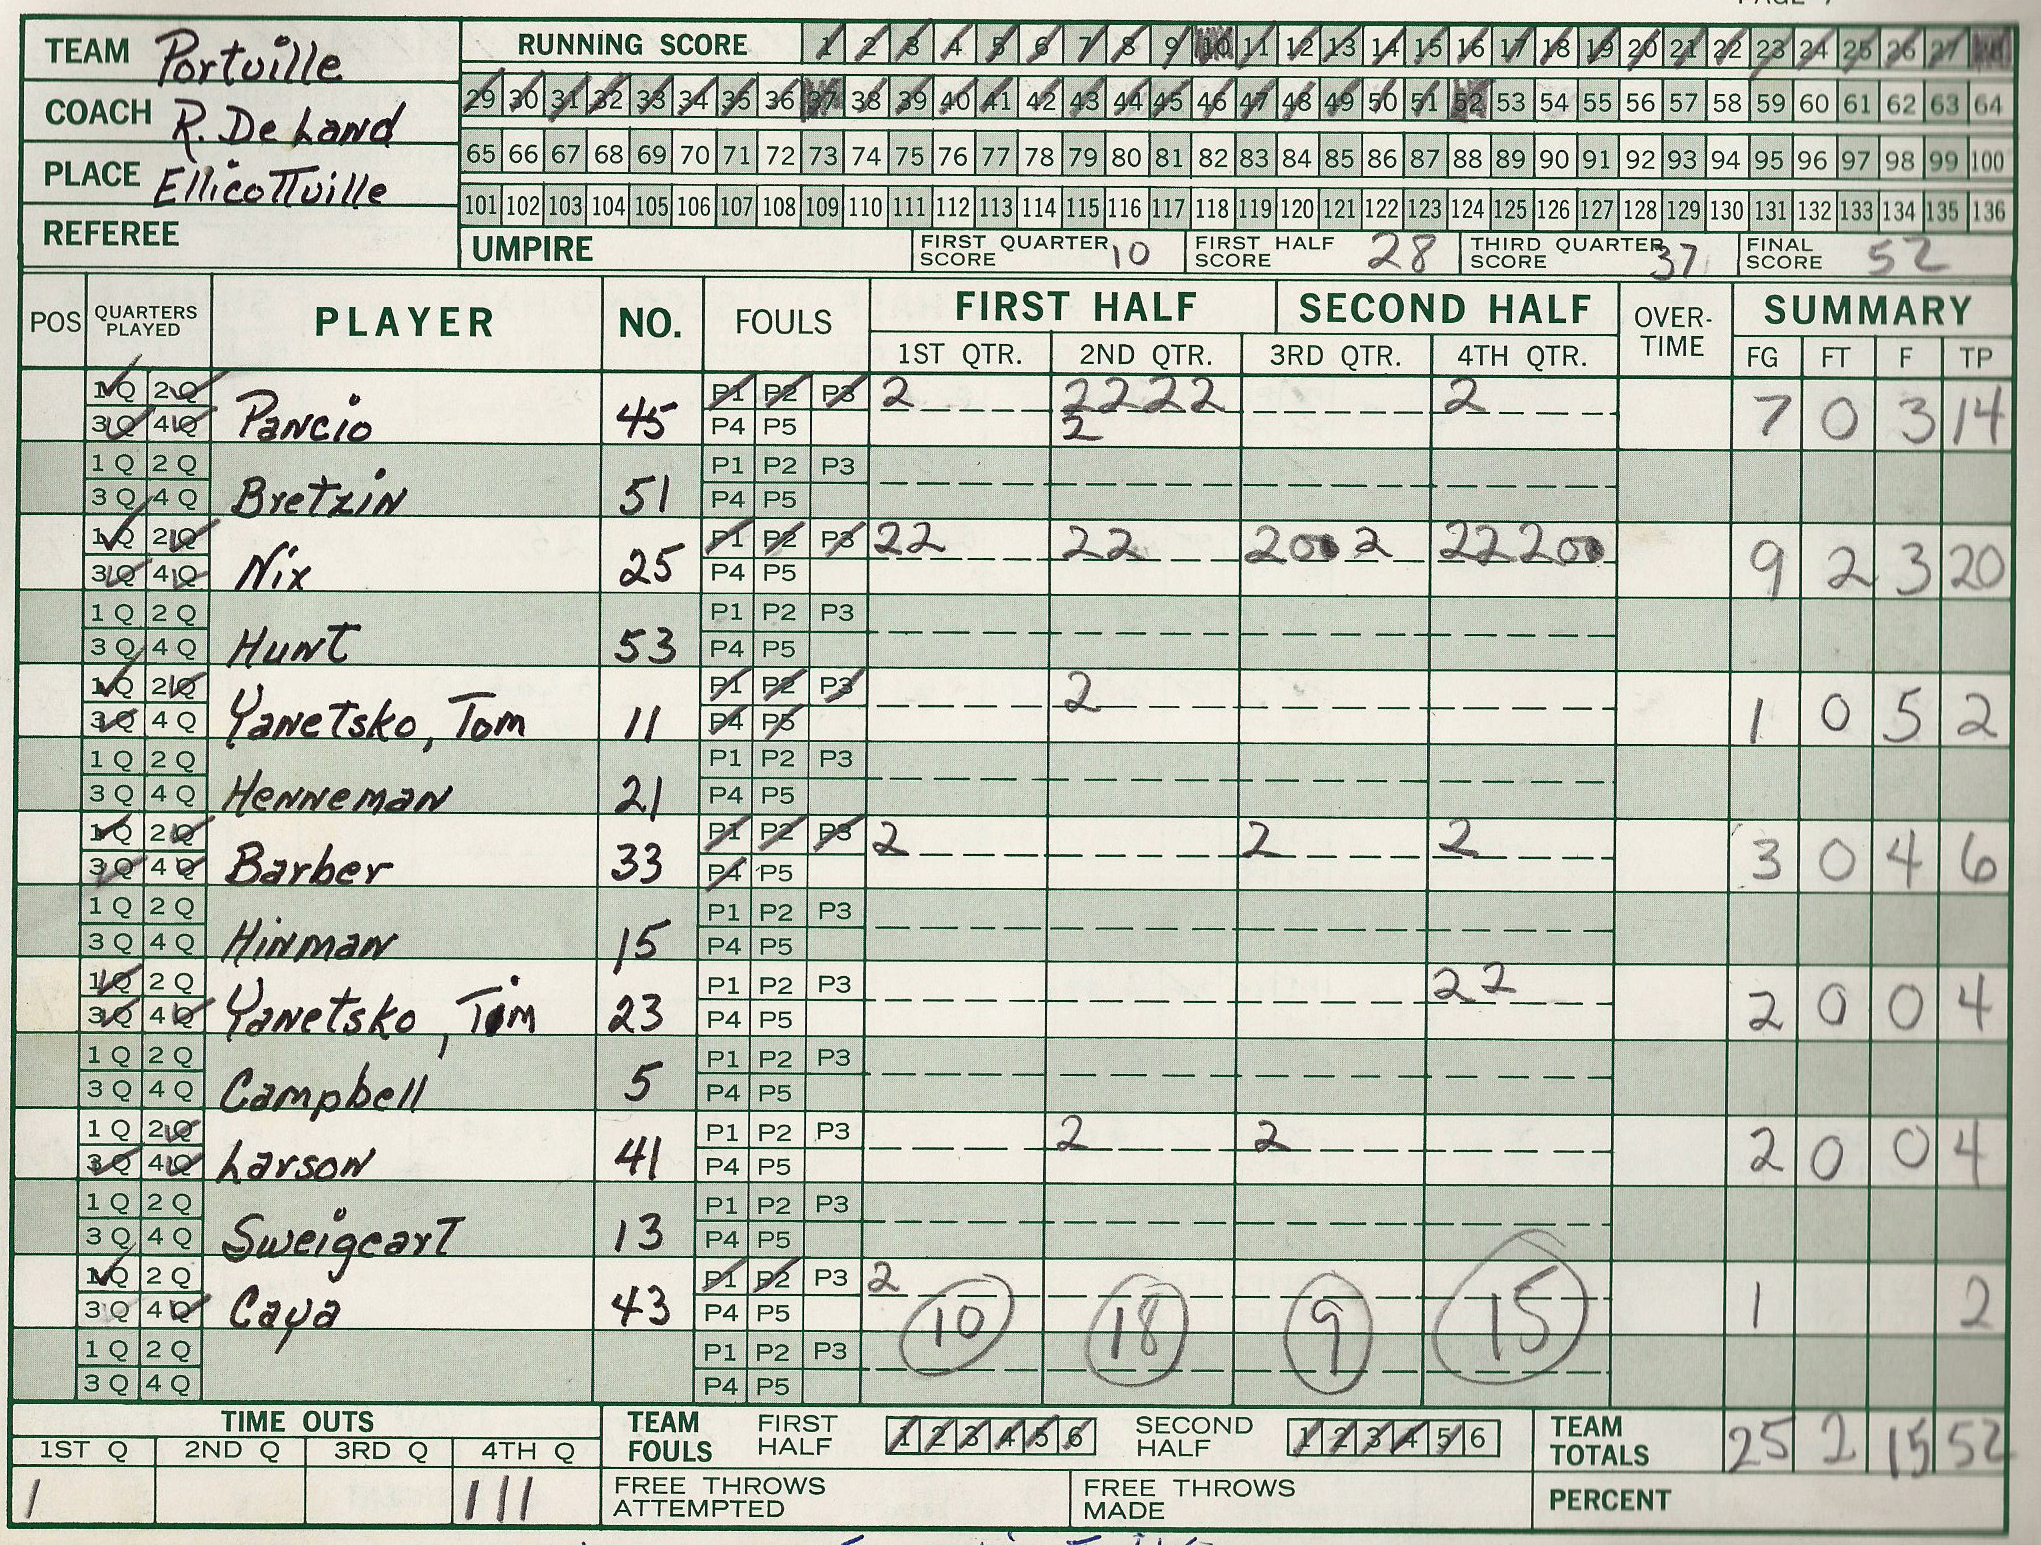 TEAM Portville
COACH R. DeLand
PLACE Ellicottville
REFEREE
RUNNING SCORE 1 2 3 4 5 6 7 8 9 10 11 12 13 14 15 16 17 18 19 20 21 22 23 24 25 26 27 28
29 30 31 32 33 34 35 36 37 38 39 40 41 42 43 44 45 46 47 48 49 50 51 52 53 54 55 56 57 58 59 60 61 62 63 64
65 66 67 68 69 70 71 72 73 74 75 76 77 78 79 80 81 82 83 84 85 86 87 88 89 90 91 92 93 94 95 96 97 98 99 100
101 102 103 104 105 106 107 108 109 110 111 112 113 114 115 116 117 118 119 120 121 122 123 124 125 126 127 128 129 130 131 132 133 134 135 136
UMPIRE FIRST QUARTER SCORE 10 FIRST HALF SCORE 28 THIRD QUARTER SCORE 37 FINAL SCORE 52
POS QUARTERS PLAYED PLAYER NO. FOULS FIRST HALF SECOND HALF OVER-TIME SUMMARY
1ST QTR. 2ND QTR. 3RD QTR. 4TH QTR. FG FT F TP
1Q 2Q P1 P2 P3 2 2 2 2 2 2
3Q 4Q Pancio 45 P4 P5 2 7 0 3 14
1Q 2Q P1 P2 P3
3Q 4Q Bretzin 51 P4 P5
1Q 2Q P1 P2 P3 22 22 2 0 0 2 2 2 2 0 0
3Q 4Q Nix 25 P4 P5 9 2 3 20
1Q 2Q P1 P2 P3
3Q 4Q Hunt 53 P4 P5
1Q 2Q P1 P2 P3 2
3Q 4Q Yanetsko, Tom 11 P4 P5 1 0 5 2
1Q 2Q P1 P2 P3
3Q 4Q Henneman 21 P4 P5
1Q 2Q P1 P2 P3 2 2 2
3Q 4Q Barber 33 P4 P5 3 0 4 6
1Q 2Q P1 P2 P3
3Q 4Q Hinman 15 P4 P5
1Q 2Q P1 P2 P3 2 2
3Q 4Q Yanetsko, Tim 23 P4 P5 2 0 0 4
1Q 2Q P1 P2 P3
3Q 4Q Campbell 5 P4 P5
1Q 2Q P1 P2 P3 2 2
3Q 4Q Larson 41 P4 P5 2 0 0 4
1Q 2Q P1 P2 P3
3Q 4Q Sweigeart 13 P4 P5
1Q 2Q P1 P2 P3 2
3Q 4Q Caya 43 P4 P5 10 18 9 15 1 2
1Q 2Q P1 P2 P3
3Q 4Q P4 P5
TIME OUTS
1ST Q 2ND Q 3RD Q 4TH Q
1 111
TEAM FOULS FIRST HALF 1 2 3 4 5 6 SECOND HALF 1 2 3 4 5 6
FREE THROWS ATTEMPTED FREE THROWS MADE
TEAM TOTALS 25 2 15 52
PERCENT